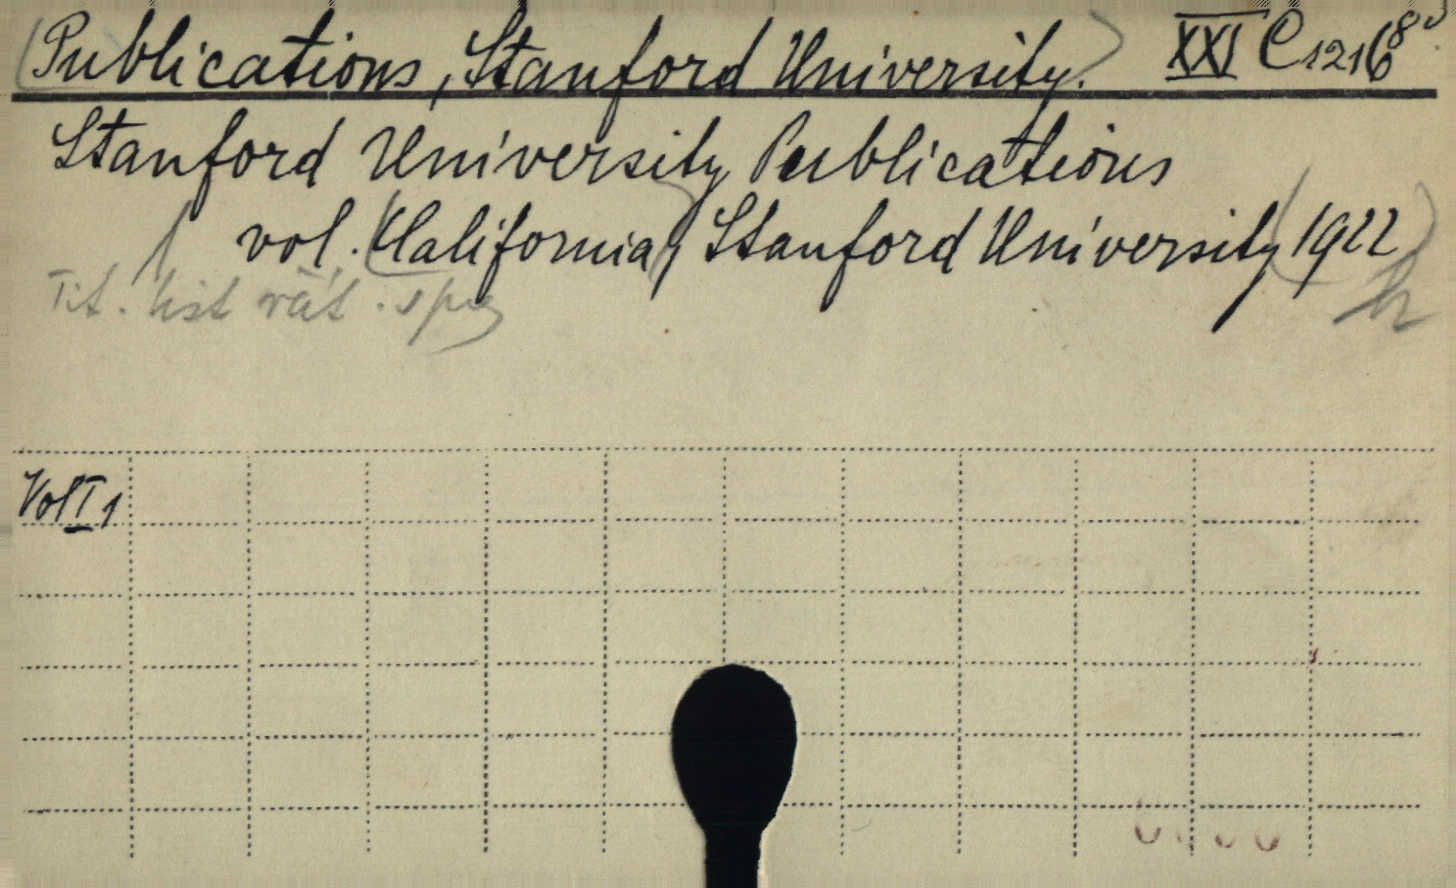 (Publications, Stanford University.) XXI C 1216
Stanford University Publications
vol. (California) Stanford University (1922)
Tit.
Vol I 1